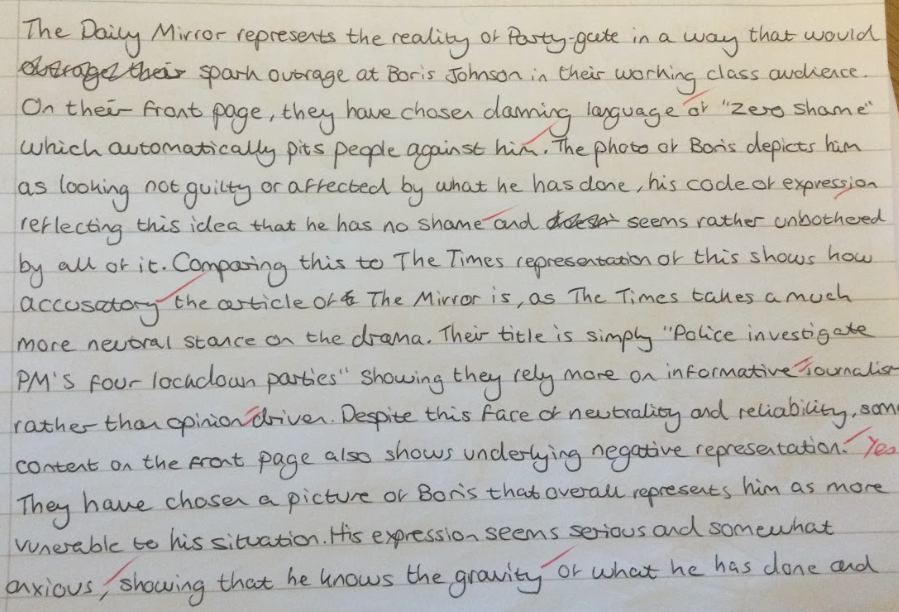 The Daily Mirror represents the reality of Party-gate in a way that would
outrage their spark outrage at Boris Johnson in their working class audience.
On their front page, they have chosen damning language of "Zero Shame"
which automatically pits people against him. The photo of Boris depicts him
as looking not guilty or affected by what he has done, his code of expression
reflecting this idea that he has no shame and doesn't seems rather unbothered
by all of it. Comparing this to The Times representation of this shows how
accusatory the article of The Mirror is, as The Times takes a much
more neutral stance on the drama. Their title is simply "Police investigate
PM's four lockdown parties" showing they rely more on informative journalism
rather than opinion driven. Despite this face of neutrality and reliability, som
content on the front page also shows underlying negative representation. Yes
They have chosen a picture of Boris that overall represents him as more
vunerable to his situation. His expression seems serious and somewhat
anxious, showing that he knows the gravity of what he has done and